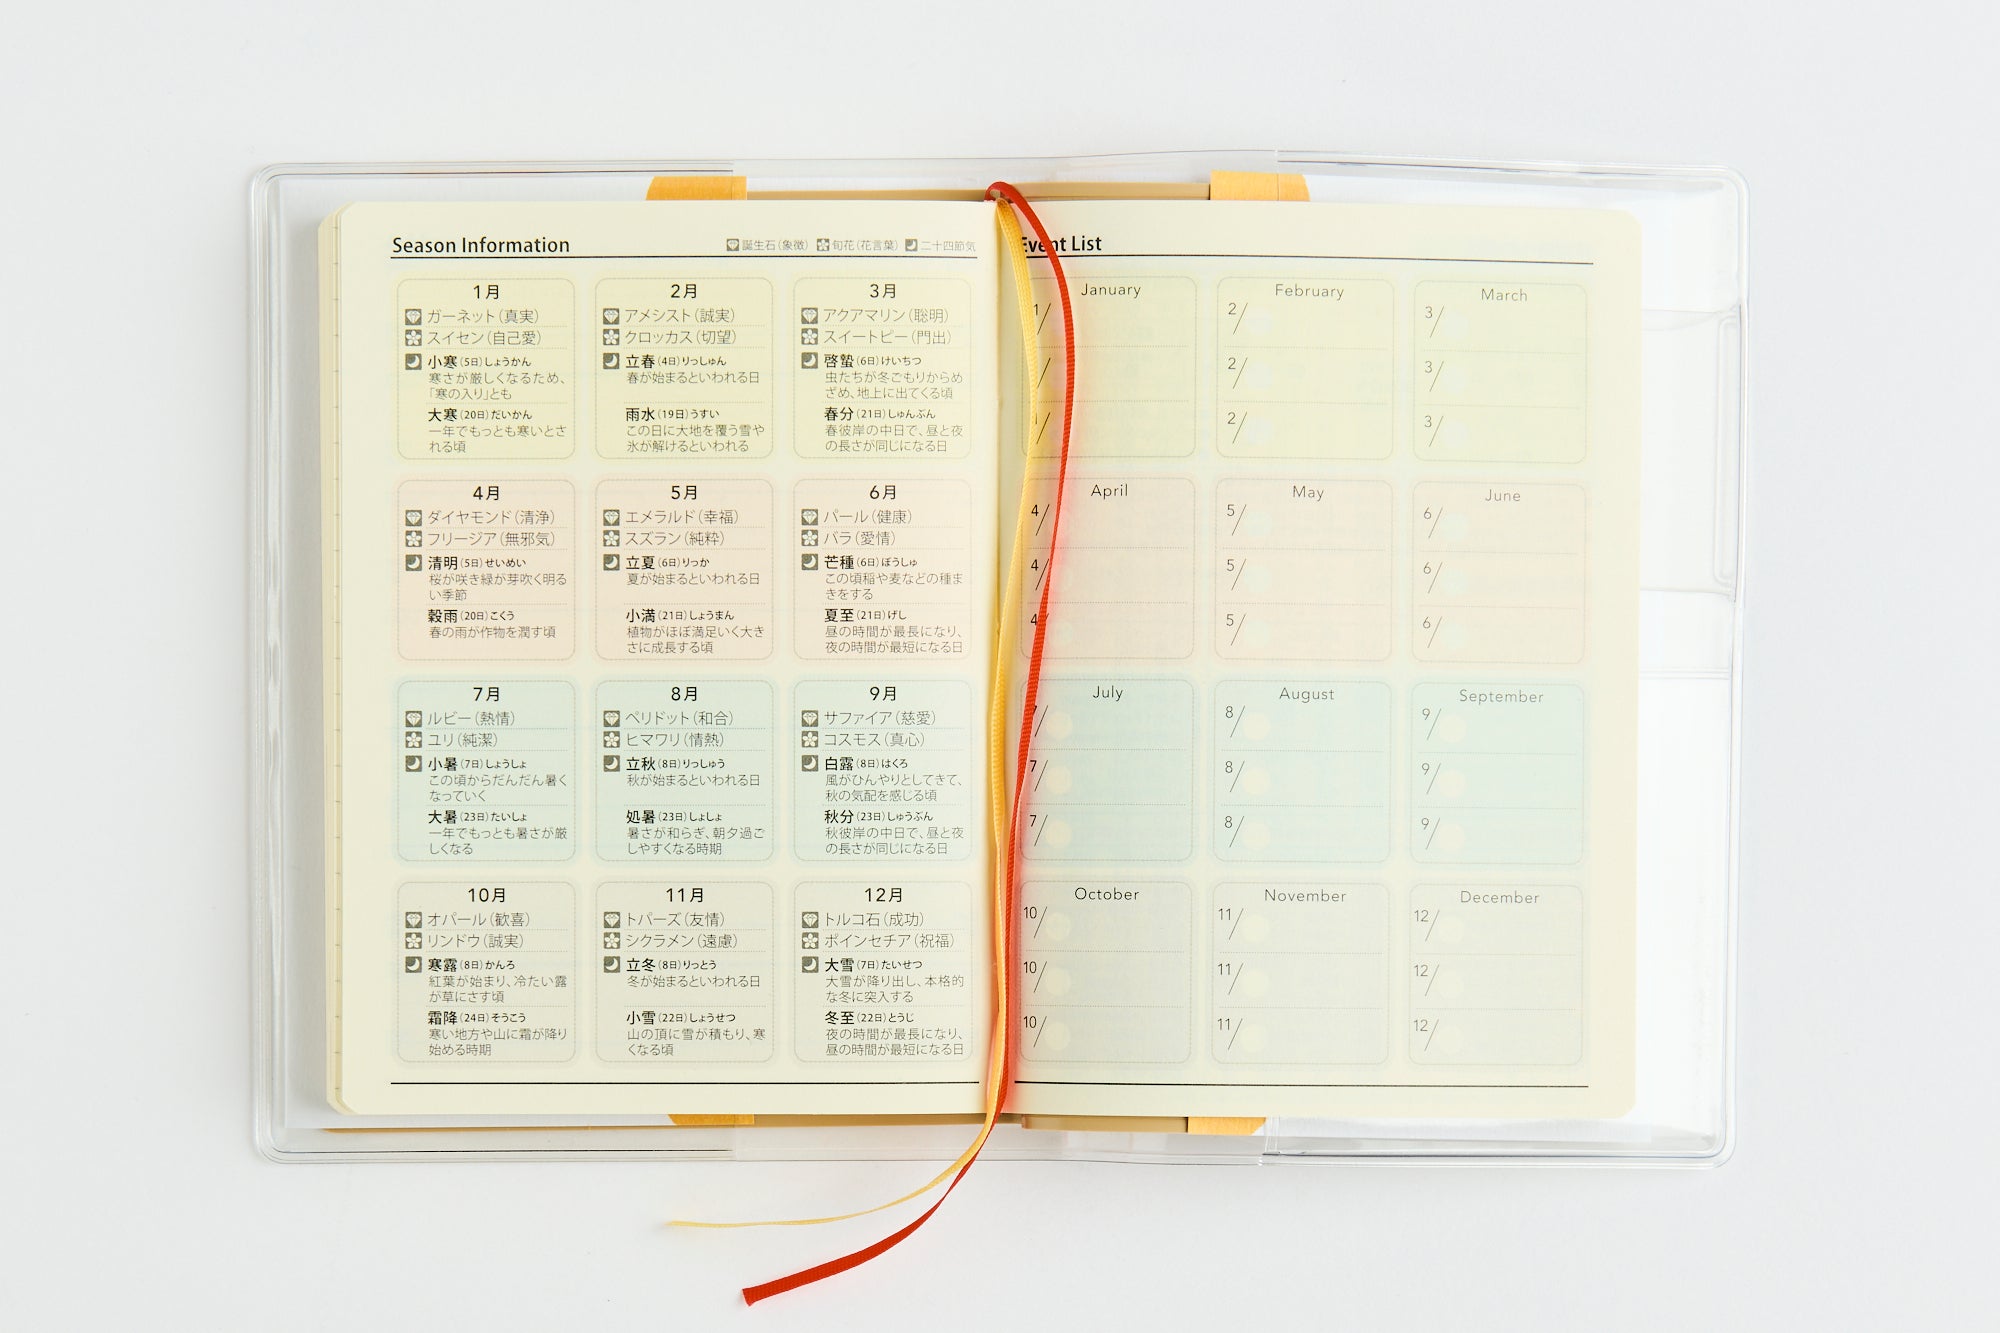 Season Information
誕生石(象徴) 旬花(花言葉) 二十四節気
1月
ガーネット(真実)
スイセン(自己愛)
小寒(5日)しょうかん
寒さが厳しくなるため、
「寒の入り」とも
大寒(20日)だいかん
一年でもっとも寒いとさ
れる頃
2月
アメシスト(誠実)
クロッカス(切望)
立春(4日)りっしゅん
春が始まるといわれる日
雨水(19日)うすい
この日に大地を覆う雪や
氷が解けるといわれる
3月
アクアマリン(聡明)
スイートピー(門出)
啓蟄(6日)けいちつ
虫たちが冬ごもりからめ
ざめ、地上に出てくる頃
春分(21日)しゅんぶん
春彼岸の中日で、昼と夜
の長さが同じになる日
4月
ダイヤモンド(清浄)
フリージア(無邪気)
清明(5日)せいめい
桜が咲き緑が芽吹く明る
い季節
穀雨(20日)こくう
春の雨が作物を潤す頃
5月
エメラルド(幸福)
スズラン(純粋)
立夏(6日)りっか
夏が始まるといわれる日
小満(21日)しょうまん
植物がほぼ満足いく大き
さに成長する頃
6月
パール(健康)
バラ(愛情)
芒種(6日)ぼうしゅ
この頃稲や麦などの種ま
きをする
夏至(21日)げし
昼の時間が最長になり、
夜の時間が最短になる日
7月
ルビー(熱情)
ユリ(純潔)
小暑(7日)しょうしょ
この頃からだんだん暑く
なっていく
大暑(23日)たいしょ
一年でもっとも暑さが厳
しくなる
8月
ペリドット(和合)
ヒマワリ(情熱)
立秋(8日)りっしゅう
秋が始まるといわれる日
処暑(23日)しょしょ
暑さが和らぎ、朝夕過ご
しやすくなる時期
9月
サファイア(慈愛)
コスモス(真心)
白露(8日)はくろ
風がひんやりとしてきて、
秋の気配を感じる頃
秋分(23日)しゅうぶん
秋彼岸の中日で、昼と夜
の長さが同じになる日
10月
オパール(歓喜)
リンドウ(誠実)
寒露(8日)かんろ
紅葉が始まり、冷たい露
が草にさす頃
霜降(24日)そうこう
寒い地方や山に霜が降り
始める時期
11月
トパーズ(友情)
シクラメン(遠慮)
立冬(8日)りっとう
冬が始まるといわれる日
小雪(22日)しょうせつ
山の頂に雪が積もり、寒
くなる頃
12月
トルコ石(成功)
ポインセチア(祝福)
大雪(7日)たいせつ
大雪が降り出し、本格的
な冬に突入する
冬至(22日)とうじ
夜の時間が最長になり、
昼の時間が最短になる日
Event List
January
1/
/
/
February
2/
2/
2/
March
3/
3/
3/
April
4/
4/
4/
May
5/
5/
5/
June
6/
6/
6/
July
7/
7/
7/
August
8/
8/
8/
September
9/
9/
9/
October
10/
10/
10/
November
11/
11/
11/
December
12/
12/
12/